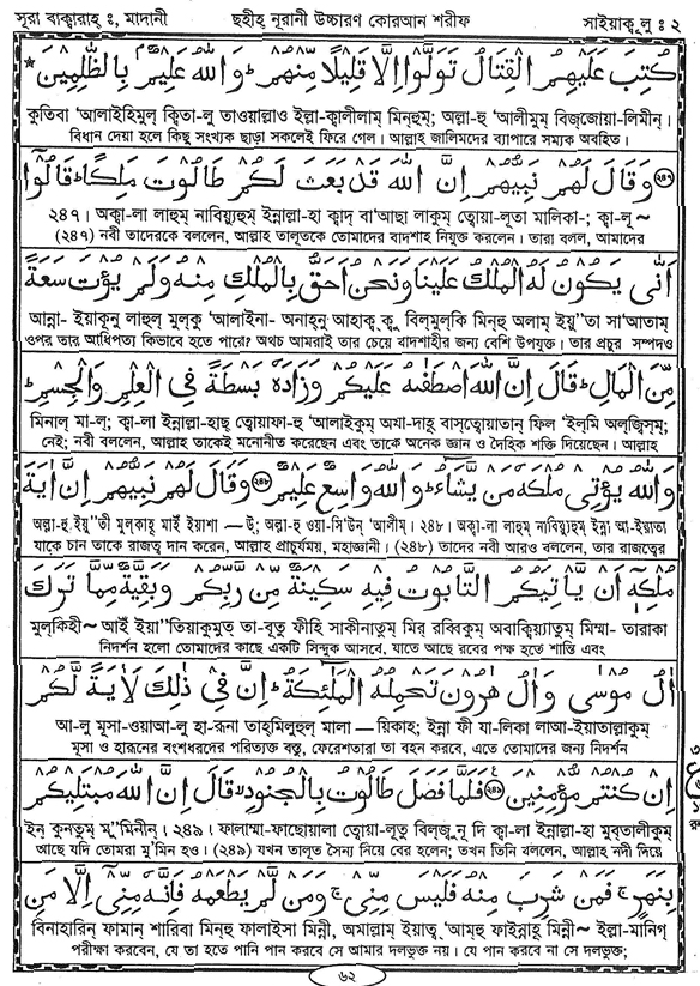 সূরা বাক্বারাহ্ ঃ, মাদানী ছহীহ্ নূরানী উচ্চারণ কোরআন শরীফ সাইয়াকূলু ঃ ২
كُتِبَ عَلَيْهِمُ الْقِتَالُ تَوَلَّوْا إِلَّا قَلِيلًا مِّنْهُمْ ۗ وَاللَّهُ عَلِيمٌ بِالظَّٰلِمِينَ
কুতিবা 'আলাইহিমুল্ ক্বিতা-লু তাওয়াল্লাও ইল্লা-ক্বালীলাম্ মিন্হুম্; অল্লা-হু 'আলীমুম্ বিজ্জোয়া-লিমীন্।
বিধান দেয়া হলে কিছু সংখ্যক ছাড়া সকলেই ফিরে গেল। আল্লাহ জালিমদের ব্যাপারে সম্যক অবহিত।
২৪৭ وَقَالَ لَهُمْ نَبِيُّهُمْ إِنَّ اللَّهَ قَدْ بَعَثَ لَكُمْ طَالُوتَ مَلِكًا ۚ قَالُوا
২৪৭। অক্বা-লা লাহুম্ নাবিয়্যুহুম্ ইন্নাল্লা-হা ক্বাদ্ বা'আছা লাকুম্ ত্বোয়া-লূতা মালিকা-; ক্বা-লূ ~
(২৪৭) নবী তাদেরকে বললেন, আল্লাহ তালূতকে তোমাদের বাদশাহ নিযুক্ত করলেন। তারা বলল, আমাদের
أَنَّىٰ يَكُونُ لَهُ الْمُلْكُ عَلَيْنَا وَنَحْنُ أَحَقُّ بِالْمُلْكِ مِنْهُ وَلَمْ يُؤْتَ سَعَةً
আন্না- ইয়াকূনু লাহুল্ মুল্কু 'আলাইনা- অনাহ্নু আহাক্ব্ক্বু বিল্মুল্কি মিন্হু অলাম্ ইয়ু''তা সা'আতাম্
ওপর তার আধিপত্য কিভাবে হতে পারে? অথচ আমরাই তার চেয়ে বাদশাহীর জন্য বেশি উপযুক্ত। তার প্রচুর সম্পদও
مِّنَ الْمَالِ ۚ قَالَ إِنَّ اللَّهَ اصْطَفَىٰهُ عَلَيْكُمْ وَزَادَهُ بَسْطَةً فِي الْعِلْمِ وَالْجِسْمِ ۖ
মিনাল্ মা-ল্; ক্বা-লা ইন্নাল্লা-হাছ্ ত্বোয়াফা-হু 'আলাইকুম্ অযা-দাহূ বাস্ত্বোয়াতান্ ফিল 'ইল্মি অল্জিস্ম্;
নেই; নবী বললেন, আল্লাহ তাকেই মনোনীত করেছেন এবং তাকে অনেক জ্ঞান ও দৈহিক শক্তি দিয়েছেন। আল্লাহ
وَاللَّهُ يُؤْتِي مُلْكَهُ مَن يَشَاءُ ۚ وَاللَّهُ وَاسِعٌ عَلِيمٌ ২৪৮ وَقَالَ لَهُمْ نَبِيُّهُمْ إِنَّ آيَةَ
অল্লা-হু ইয়ু''তী মুল্কাহূ মাইঁ ইয়াশা — উ; অল্লা-হু ওয়া-সি'উন্ 'আলীম্। ২৪৮। অক্বা-লা লাহুম্ নাবিয়্যুহুম্ ইন্না আ-ইয়াতা
যাকে চান তাকে রাজত্ব দান করেন, আল্লাহ প্রাচুর্যময়, মহাজ্ঞানী। (২৪৮) তাদের নবী আরও বললেন, তার রাজত্বের
مُلْكِهِ أَن يَأْتِيَكُمُ التَّابُوتُ فِيهِ سَكِينَةٌ مِّن رَّبِّكُمْ وَبَقِيَّةٌ مِّمَّا تَرَكَ
মুল্কিহী ~ আইঁ ইয়া''তিয়াকুমুত্ তা-বূতু ফীহি সাকীনাতুম্ মির্ রব্বিকুম্ অবাক্বিয়্যাতুম্ মিম্মা- তারাকা
নিদর্শন হলো তোমাদের কাছে একটি সিন্দুক আসবে, যাতে আছে রবের পক্ষ হতে শান্তি এবং
آلُ مُوسَىٰ وَآلُ هَٰرُونَ تَحْمِلُهُ الْمَلَٰئِكَةُ ۚ إِنَّ فِي ذَٰلِكَ لَآيَةً لَّكُمْ
আ-লু মূসা-ওয়াআ-লু হা-রূনা তাহ্মিলুহুল্ মালা — য়িকাহ্; ইন্না ফী যা-লিকা লাআ-ইয়াতাল্লাকুম্
মূসা ও হারূনের বংশধরদের পরিত্যক্ত বস্তু, ফেরেশতারা তা বহন করবে, এতে তোমাদের জন্য নিদর্শন
إِن كُنتُم مُّؤْمِنِينَ ২৪৯ فَلَمَّا فَصَلَ طَالُوتُ بِالْجُنُودِ قَالَ إِنَّ اللَّهَ مُبْتَلِيكُم
ইন্ কুনতুম্ মু''মিনীন্। ২৪৯। ফালাম্মা-ফাছোয়ালা ত্বোয়া-লূতু বিল্জুনূ দি ক্বা-লা ইন্নাল্লা-হা মুব্তালীকুম্
আছে যদি তোমরা মু'মিন হও। (২৪৯) যখন তালূত সৈন্য নিয়ে বের হলেন; তখন তিনি বললেন, আল্লাহ নদী দিয়ে
بِنَهَرٍ ۚ فَمَن شَرِبَ مِنْهُ فَلَيْسَ مِنِّي ۚ وَمَن لَّمْ يَطْعَمْهُ فَإِنَّهُ مِنِّي إِلَّا مَنِ
বিনাহারিন্ ফামান্ শারিবা মিন্হু ফালাইসা মিন্নী, অমাল্লাম্ ইয়াত্ব্'আম্হু ফাইন্নাহূ মিন্নী ~ ইল্লা-মানিগ্
পরীক্ষা করবেন, যে তা হতে পানি পান করবে সে আমার দলভুক্ত নয়। যে পান করবে না সে দলভুক্ত;
৬২